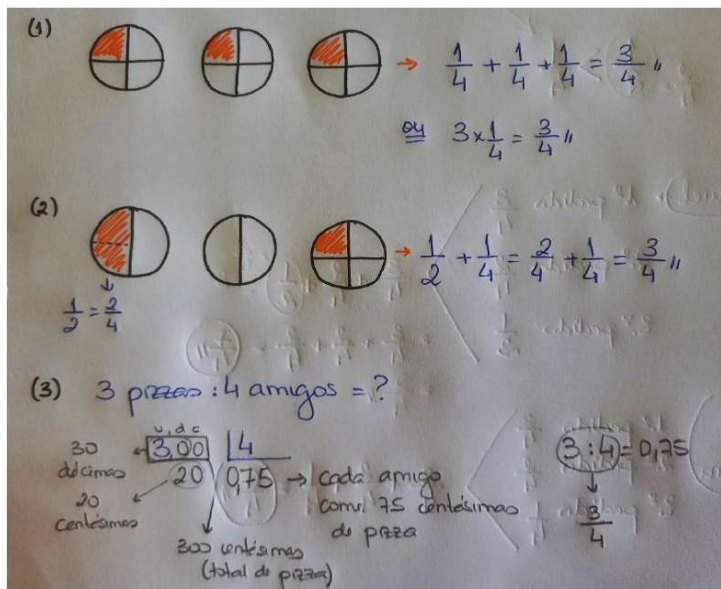 (1)
→ 1/4 + 1/4 + 1/4 = 3/4 "
ou 3 x 1/4 = 3/4 "
(2)
→ 1/2 + 1/4 = 2/4 + 1/4 = 3/4 "
1/2 = 2/4
(3) 3 pizzas : 4 amigos = ?
u, d c
30 décimas
3,00 | 4
20 0,75 → cada amigo
come 75 centésimas
de pizza
20 centésimas
300 centésimas
(total de pizza)
3 : 4 = 0,75
3/4